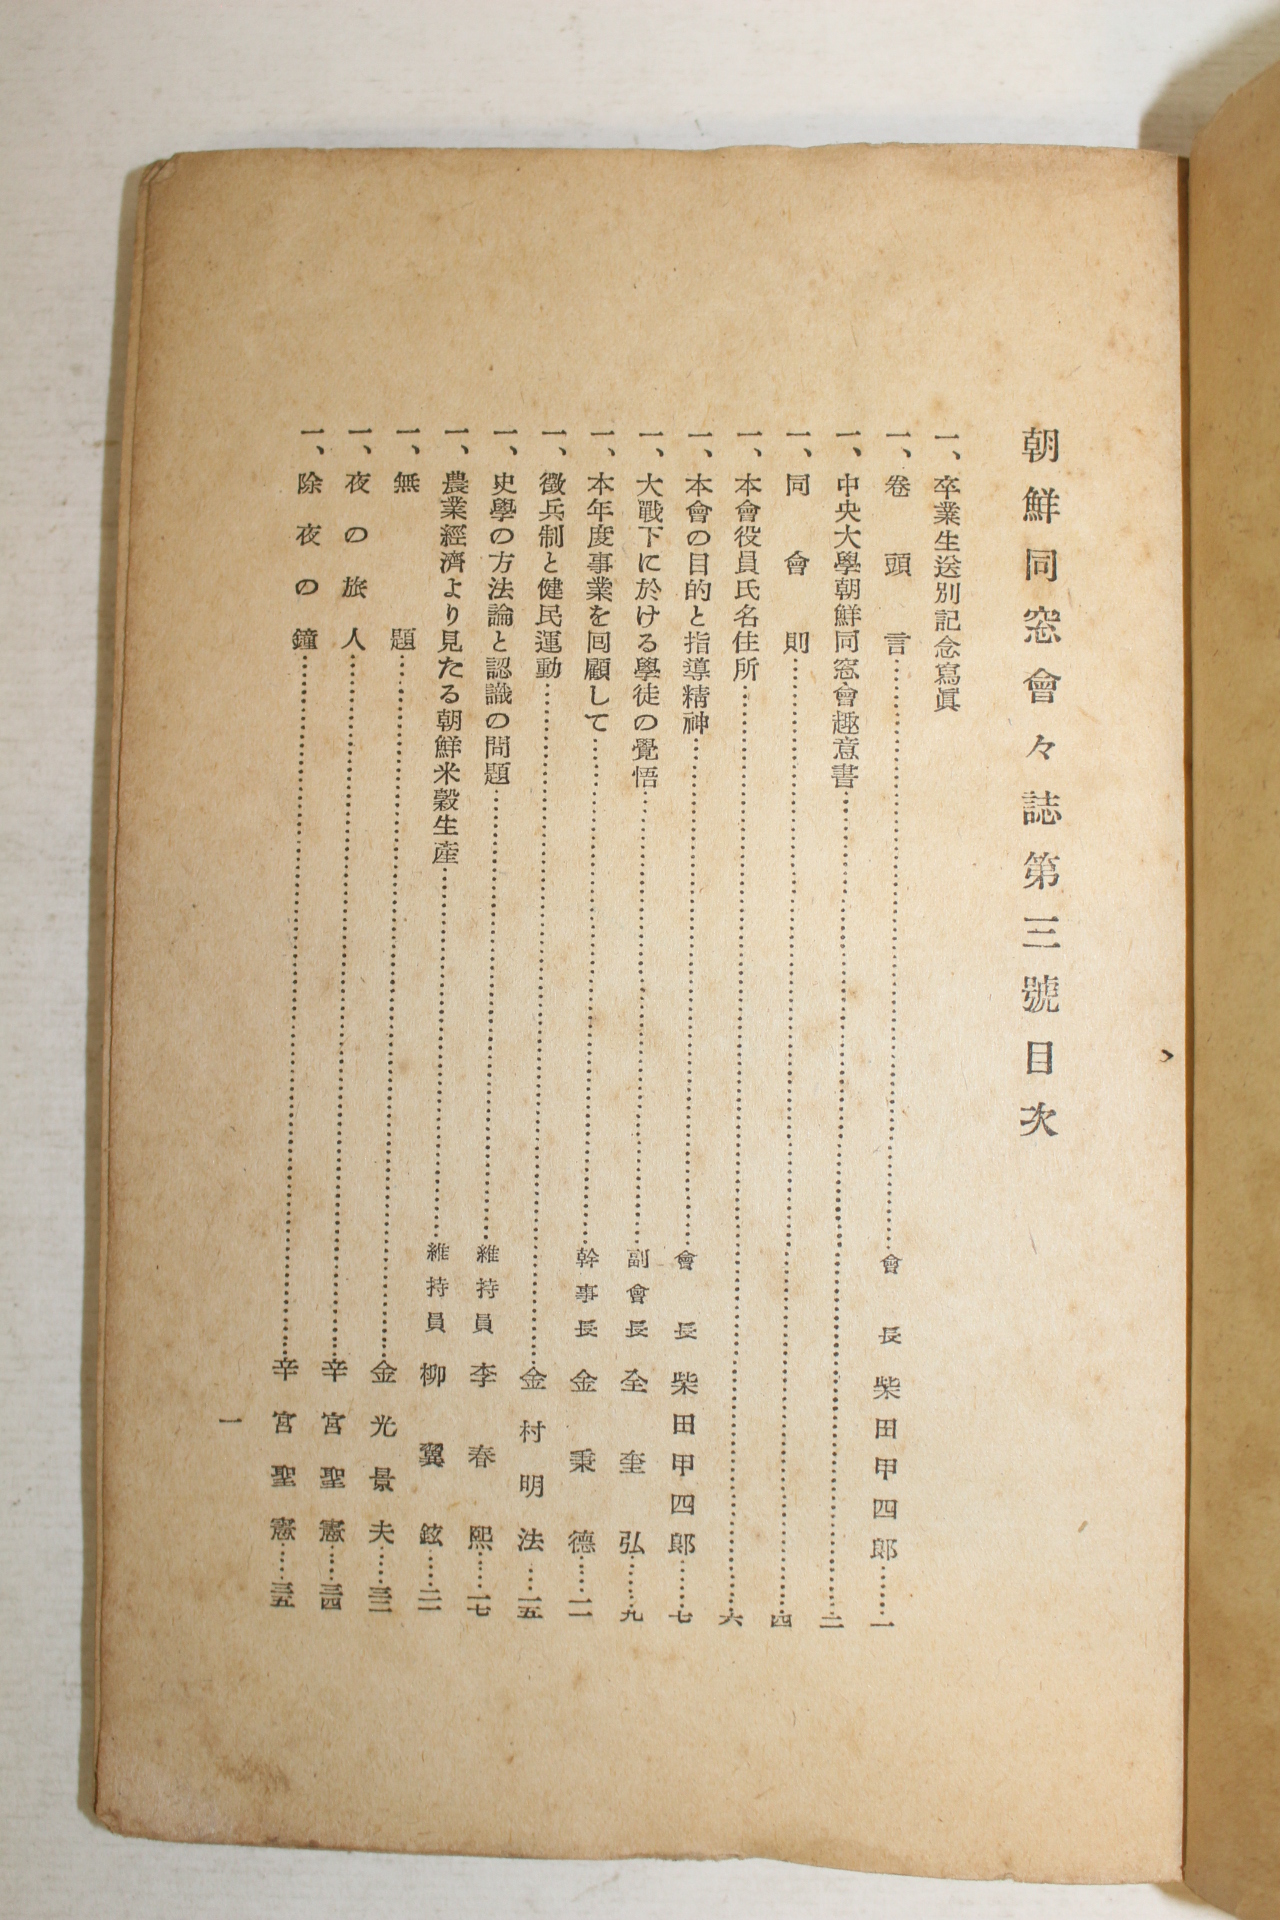 朝鮮同窓會々誌第三號目次
一、卒業生送別記念寫眞
一、卷頭言……會長 柴田甲四郎……一
一、中央大學朝鮮同窓會趣意書……二
一、同會則……四
一、本會役員氏名住所……六
一、本會の目的と指導精神……會長 柴田甲四郎……七
一、大戰下に於ける學徒の覺悟……副會長 全奎弘……九
一、本年度事業を囘顧して……幹事長 金秉德……一一
一、徵兵制と健民運動……金村明法……一五
一、史學の方法論と認識の問題……維持員 李春熙……一七
一、農業經濟より見たる朝鮮米穀生產……維持員 柳翼鉉……二一
一、無題……金光景夫……三二
一、夜の旅人……辛宮聖憲……三四
一、除夜の鐘……辛宮聖憲……三五
一